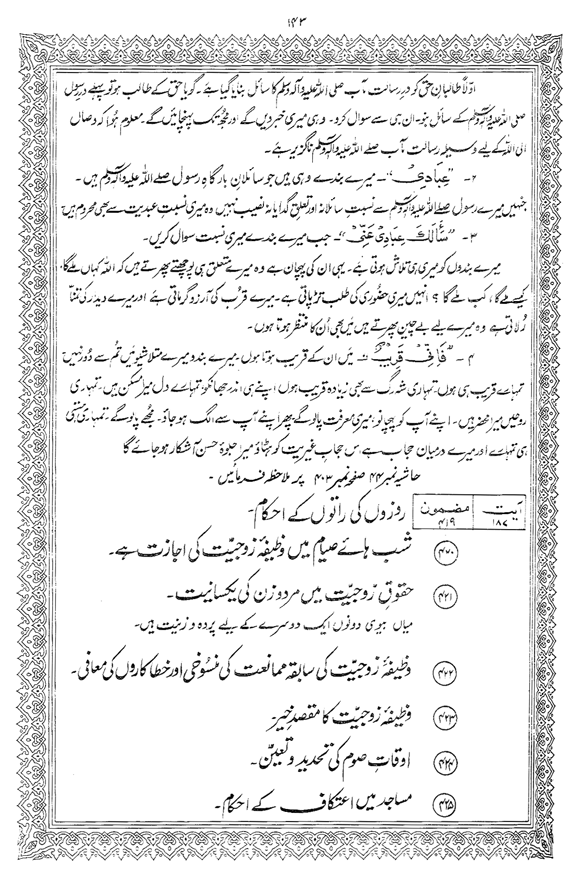 ۱۴۳
اولاً طالبانِ حق کو درِ رسالت مآب صلی اللہ علیہ وآلہ وسلم کا سائل بنایا گیا ہے۔ گویا حق کے طالب ہو تو پہلے درِ رسول
صلی اللہ علیہ وآلہ وسلم کے سائل بنو۔ ان ہی سے سوال کرو۔ وہی میری خبر دیں گے اور مجھ تک پہنچائیں گے۔ معلوم ہُوا کہ وصال
الی اللہ کے لیے وسیلہ رسالت مآب صلے اللہ علیہ وآلہ وسلم ناگزیر ہے۔
۲۔ ”عِبَادِیْ“۔ میرے بندے وہی ہیں جو سائلانِ بارگاہِ رسول صلے اللہ علیہ وآلہ وسلم ہیں۔
جنہیں میرے رسول صلے اللہ علیہ وآلہ وسلم سے نسبتِ سائلانہ اور تعلقِ گدایانہ نصیب نہیں وہ میری نسبتِ عبدیت سے بھی محروم ہیں
۳۔ ”سَأَلَكَ عِبَادِیْ عَنِّیْ“۔ جب میرے بندے میری نسبت سوال کریں۔
میرے بندوں کو میری ہی تلاش ہوتی ہے۔ یہی ان کی پہچان ہے وہ میرے متعلق ہی پوچھتے پھرتے ہیں کہ اللہ کہاں ملے گا،
کیسے ملے گا، کب ملے گا؟ انہیں میری حضُوری کی طلب تڑپاتی ہے۔ میرے قُرب کی آرزو گرماتی ہے اور میرے دیدار کی تمنّا
رُلاتی ہے وہ میرے لیے بے چین پھرتے ہیں میں بھی اُن کا منتظر ہوتا ہوں۔
۴۔ ”فَاِنِّیْ قَرِیْبٌ“۔ میں ان کے قریب ہوتا ہوں۔ میرے بندو میرے متلاشیو میں تُم سے دُور نہیں
تمہارے قریب ہی ہوں، تمہاری شہ رگ سے بھی زیادہ قریب ہوں اپنے ہی اندر جھانکو تمہارے دل میرا مسکن ہیں۔ تمہاری
روحیں میرا مظہر ہیں۔ اپنے آپ کو پہچانو، میری معرفت پا لو گے پھر اپنے آپ سے الگ ہو جاؤ۔ مجھے پا لو گے۔ تمہاری ہستی
ہی تمہارے اور میرے درمیان حجاب ہے، بس حجابِ غیریت کو ہٹاؤ میرا جلوۂ حسن آشکار ہو جائے گا
حاشیہ نمبر ۴۴ صفحہ نمبر ۴۰۳ پر ملاحظہ فرمائیں۔
آیت ۱۸۷ مضمون ۴۱۹ روزوں کی راتوں کے احکام۔
۴۲۰ شب ہائے صیام میں وظیفۂ زوجیّت کی اجازت ہے۔
۴۲۱ حقوقِ زوجیّت میں مرد و زن کی یکسانیت۔
میاں بیوی دونوں ایک دوسرے کے لیے پردہ و زینت ہیں۔
۴۲۲ وظیفۂ زوجیّت کی سابقہ ممانعت کی منسُوخی اور خطا کاروں کی معافی۔
۴۲۳ وظیفۂ زوجیّت کا مقصدِ خیر۔
۴۲۴ اوقاتِ صوم کی تحدید و تعیّن۔
۴۲۵ مساجد میں اعتکاف کے احکام۔